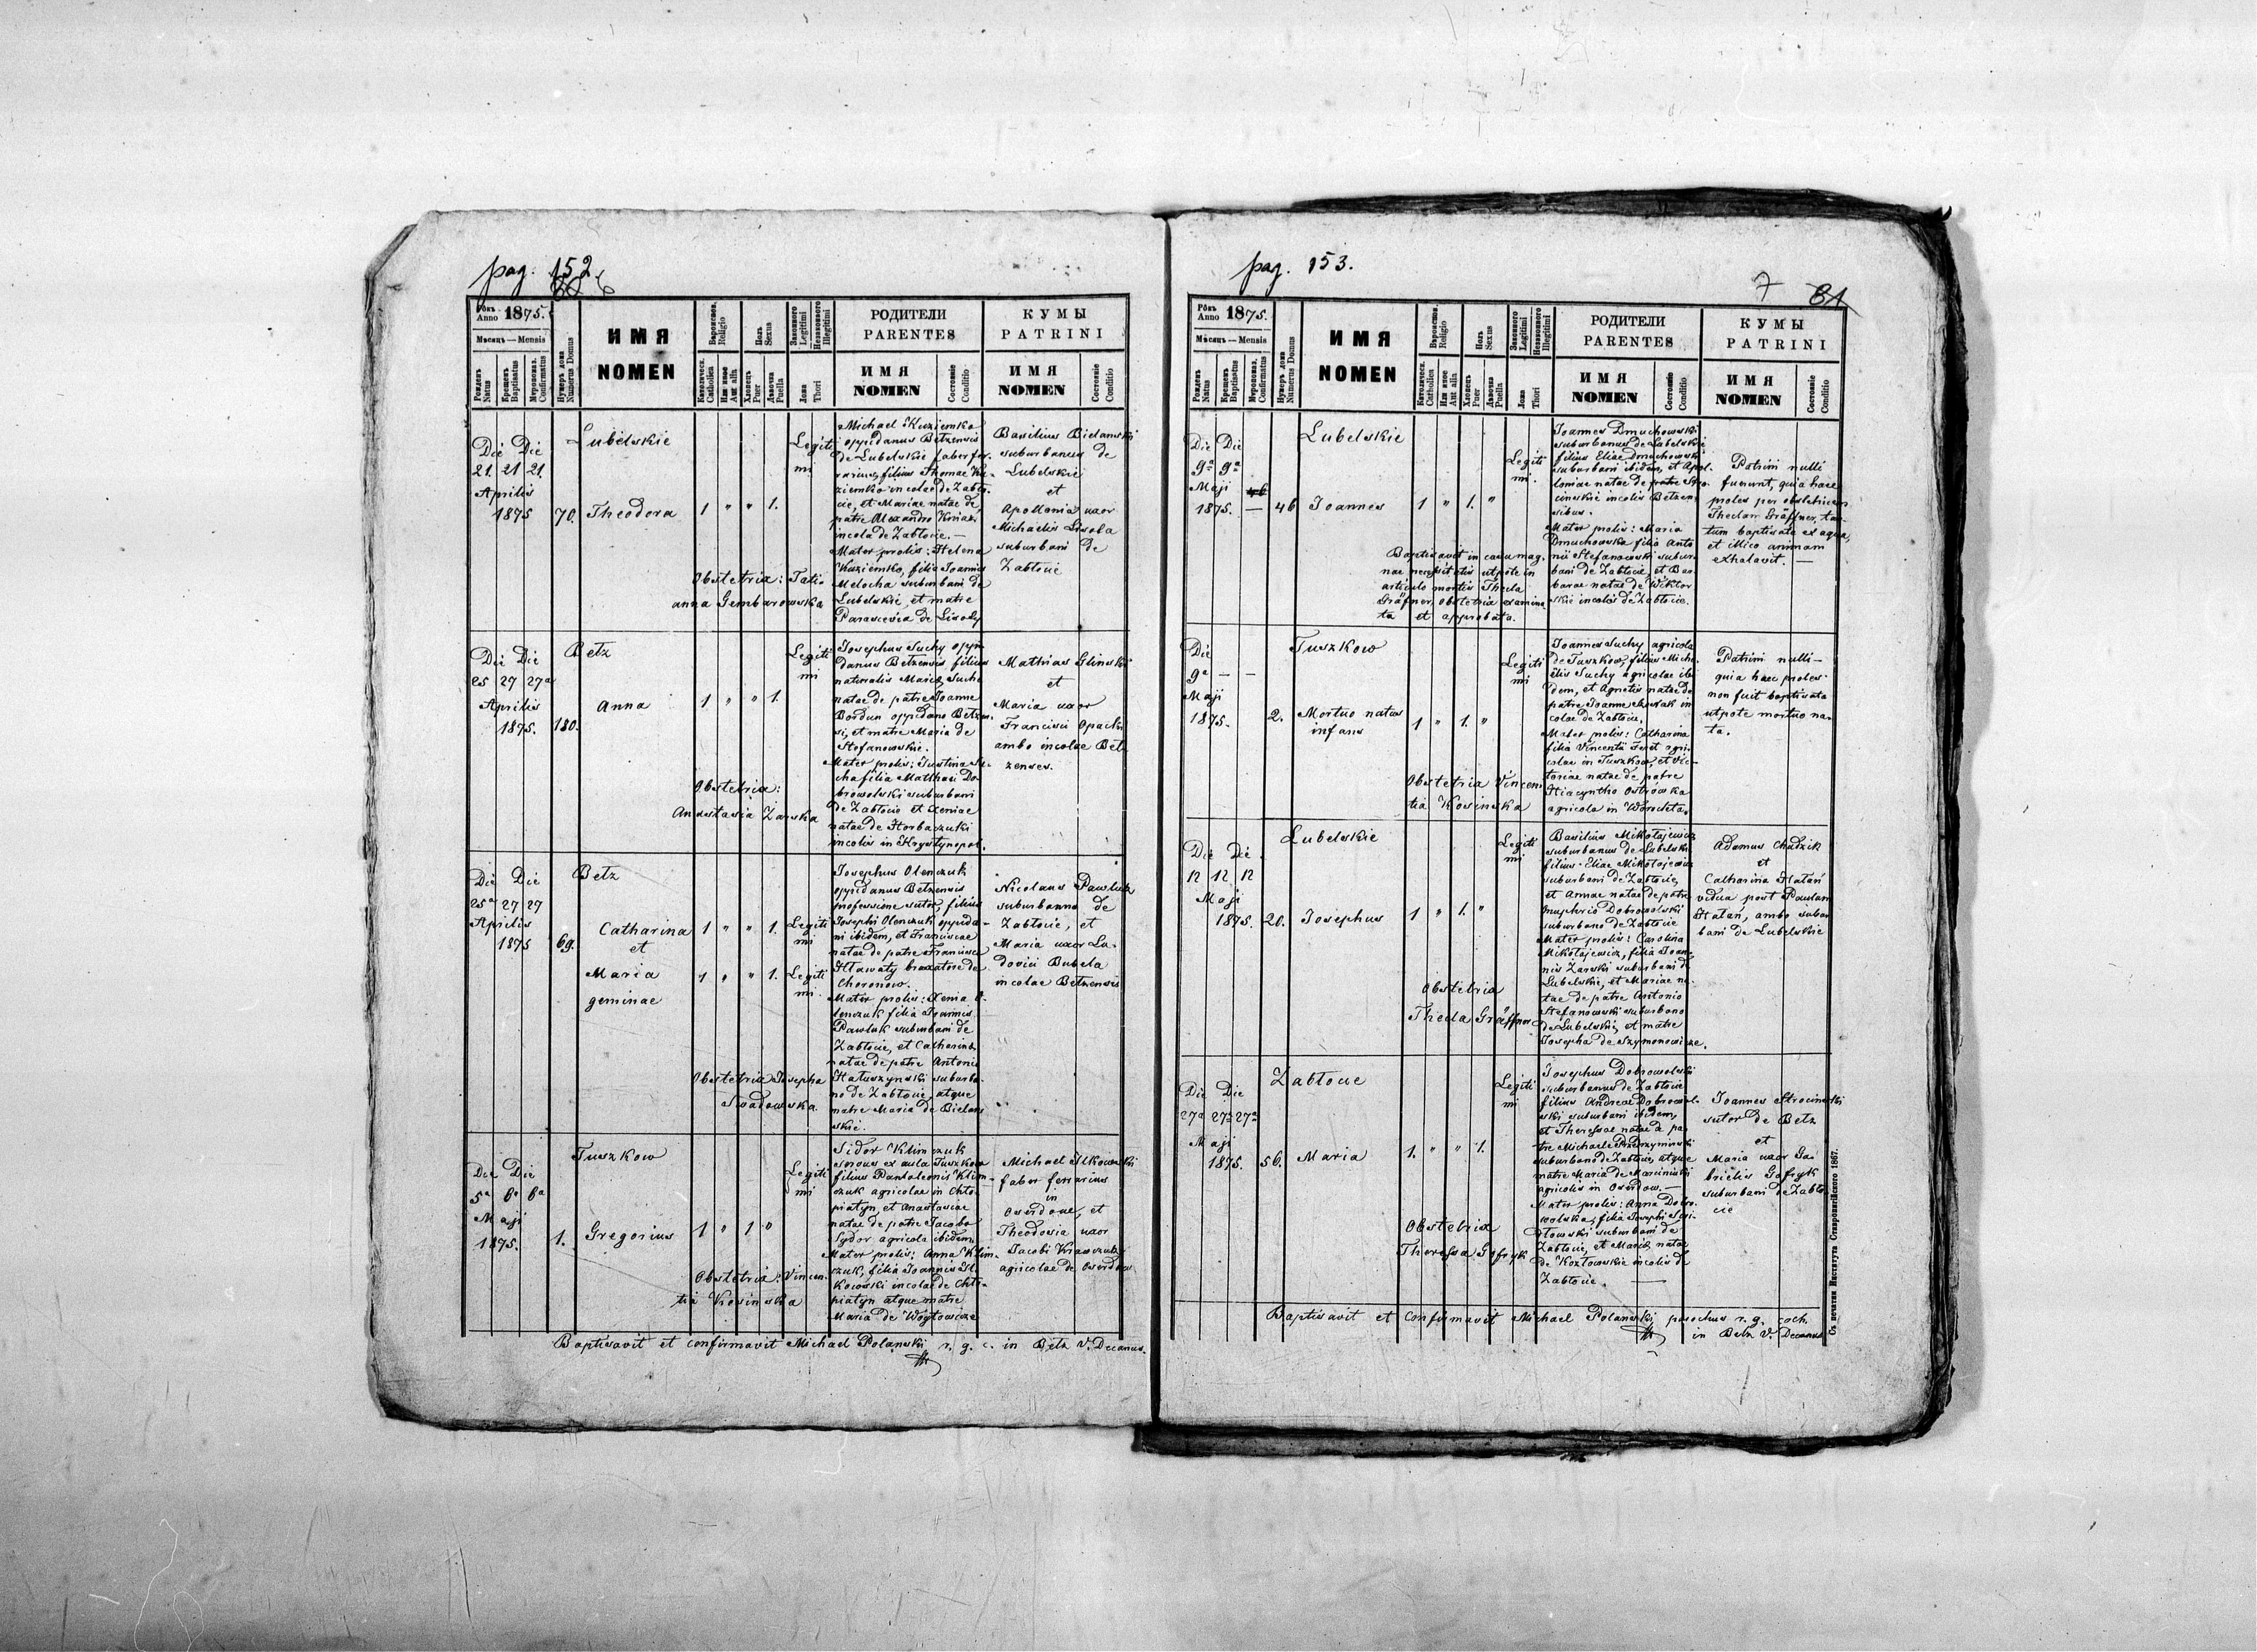 pag. 152
6
Рôкъ Anno 1875.
Мѣсяцъ — Mensis
Рожденъ Natus
Крещенъ Baptisatus
Мѵропомаз. Confirmatus
Нумеръ дома Numerus Domus
ИМЯ
NOMEN
Religio
Католическ. Catholica
Или иное Aut alia
Полъ Sexus
Хлопецъ Puer
Дѣвочка Puella
Законного Legitimi
Незаконного Illegitimi
Ложа Thori
РОДИТЕЛИ
PARENTES
ИМЯ
NOMEN
Состояніе Conditio
КУМЫ
PATRINI
ИМЯ
NOMEN
Состояніе Conditio
Lubelskie
Die Die
21 21 21
Aprilis
1875
70. Theodora
1 " " 1.
Legiti
mi
Michael Kuziemko
oppidanus Betzensis
de Lubelskie faber fer-
rarius, filius Thomae Ku-
ziemko incolae de Zabło-
cie, et Mariae natae de
patre Alexandro
incola de Zabłocie.—
Mater prolis: Helena
Kuziemko, filia Joannis
Melocha suburbani de
Lubelskie, et matre
Parascevia de
Basilius Bielanski
suburbanus de
Lubelskie
et
Apollonia uxor
Michaelis
suburbani de
Zabłocie
Obstetrix: Tatio
anna Gembarowska
Betz
Die Die
25 27 27a
Aprilis
1875. 180.
Anna
1 " " 1.
Legiti
mi
Josephus Suchy oppi-
danus Betzensis filius
naturalis Mariae Suche
natae de patre Joanne
Bordun oppidano Betzen-
si, et matre Maria de
Stefanowskie.
Mater prolis: Justina Su-
cha filia Matthaei Do-
browolski suburbani
de Zabłocie et Xeniae
natae de Horbaczuki
incolis in Krystynopol.
Mathias Glinski
et
Maria uxor
Francisci Opacki
ambo incolae Bel-
zenses.
Obstetrix:
Anastasia Zarska
Betz
Die Die
25a 27 27
Aprilis
1875 69.
Catharina
et
Maria
geminae
1 " " 1. Legiti
mi
1 " " 1. Legiti
mi.
Josephus Olenczuk
oppidanus Betzensis
professione sutor, filius
Josephi Olenczuk oppida-
ni ibidem, et Franciscae
natae de patre Francisco
Hławaty braxatore de
Choronow.
Mater prolis: Xenia O-
lenczuk filia Joannis
Pawluk suburbani de
Zabłocie, et Catharinae
natae de patre Antonio
Hałuszynski suburba-
no de Zabłocie, atque
matre Maria de Bielan-
skie.
Nicolaus Pawluk
suburbanus de
Zabłocie, et
Maria uxor Lu-
dovici Bubela
incolae Betzensis
Obstetrix Josepha
Swadowska.
Tuszkow
Die Die
5a 6a 6a
Maji
1875.
1. Gregorius
1 " 1 "
Legiti
mi
Sidor Klimczuk
servus ex aula Tuszkow
filius Pantoleonis Klim-
czuk agricolae in Chło-
piatyn, et Anastasiae
natae de patre Jacobo
Sydor agricola ibidem
Mater prolis: Anna Klim-
czuk, filia Joannis Il-
kowski incolae de Chło-
piatyn atque matre
Maria de Wójtowicze
Michael Ilkowski
faber ferrarius
in
Oserdow, et
Theodosia uxor
Jacobi Krawczuk
agricolae de Oserdow
Obstetrix: Vincen-
tia Kosinska
Baptisavit et confirmavit Michael Polanski r. g. c. in Betz V. Decanus.
pag. 153.
7
81
Рôкъ Anno 1875.
Мѣсяцъ — Mensis
Рожденъ Natus
Крещенъ Baptisatus
Мѵропомаз. Confirmatus
Нумеръ дома Numerus Domus
ИМЯ
NOMEN
Religio
Католическ. Catholica
Или иное Aut alia
Полъ Sexus
Хлопецъ Puer
Дѣвочка Puella
Законного Legitimi
Незаконного Illegitimi
Ложа Thori
РОДИТЕЛИ
PARENTES
ИМЯ
NOMEN
Состояніе Conditio
КУМЫ
PATRINI
ИМЯ
NOMEN
Состояніе Conditio
Lubelskie
Die Die
9a 9a
Maji
1875. — 46 Joannes
1 " 1. "
Legiti
mi.
Joannes Dmuchowski
suburbanus de Lubelskie
filius Eliae Dmuchowski
suburbani ibidem, et Apol-
loniae natae de patre Stro-
cinskie incolis Betzen-
sibus.
Mater prolis: Maria
Dmuchowska filia Anto
nii Stefanowski subur-
bani de Zabłocie et Bar
barae natae de Wiktor
skie incolis de Zabłocie.
Patrini nulli
fuerunt, quia haec
proles per obstetricem
Theclam Gräffner, tan-
tum baptisata ex aqua,
et illico animam
exhalavit. —
Baptisavit in casu mag-
nae necessitatis utpote in
articulo mortis Thecla
Gräffner, obstetrix examina-
ta et approbata.
Tuszkow
Die
9a — —
Maji
1875.
2. Mortuo natus
infans
1 " 1. "
Legiti
mi
Joannes Suchy agricola
de Tuszkow, filius Micha-
ëlis Suchy agricolae ibi-
dem, et Agnetis natae de
patre Joanne in
colae de Zabłocie.
Mater prolis: Catharina
filia Vincentii Feret agri-
colae in Tuszkow, et Vic-
toriae natae de patre
Hiacyntho Ostrowka
agricola in Worochta.
Patrini nulli —
quia haec proles
non fuit baptisata
utpote mortuo na-
ta.
Obstetrix Vincen
tia Kosinska
Lubelskie
Die Die
12 12 12
Maji
1875. 20. Josephus
1 " 1. "
Legiti
mi
Basilius Mikołajewicz
suburbanus de Lubelskie
filius Eliae Mikołajewicz
suburbani de Zabłocie,
et Annae natae de patre
Onuphrio Dobrowolski
suburbano de Zabłocie
Mater prolis: Carolina
Mikołajewicz, filia Joan-
nis Zarski suburbani de
Lubelskie, et Mariae na-
tae de patre Antonio
Stefanowski suburbano
de Lubelskie, et matre
Josepha de Szymonowicze.
Adamus Chudzik
et
Catharina Hałań
vidua post Paulum
Hałań, ambo subur
bani de Lubelskie
Obstetrix
Thecla Gräffner
Zabłocie
Die Die
27a 27a 27a
Maji
1875. 56. Maria
1. " " 1.
Legiti
mi
Josephus Dobrowolski
suburbanus de Zabłocie
filius Andreae Dobrowol-
ski suburbani ibidem,
et Theressae natae de pa-
tre Michaele
suburbano de Zabłocie, atque
matre Maria de Marciniuki
agricolis in Oserdow.—
Mater prolis: Anna Dobro-
wolska, filia Josephi
suburbani de
Zabłocie, et Mariae natae
de Kozłowskie incolis de
Zabłocie. —
Joannes Strocinski
sutor de Betz
et
Maria uxor Ga
brielis Gofryk
suburbani de Zabło
cie
Obstetrix
Theressa Gofryk
Baptisavit et confirmavit Michael Polanski parochus r. g. cath.
in Betz V. Decanus
Съ печатни Института Ставропигійского 1867.